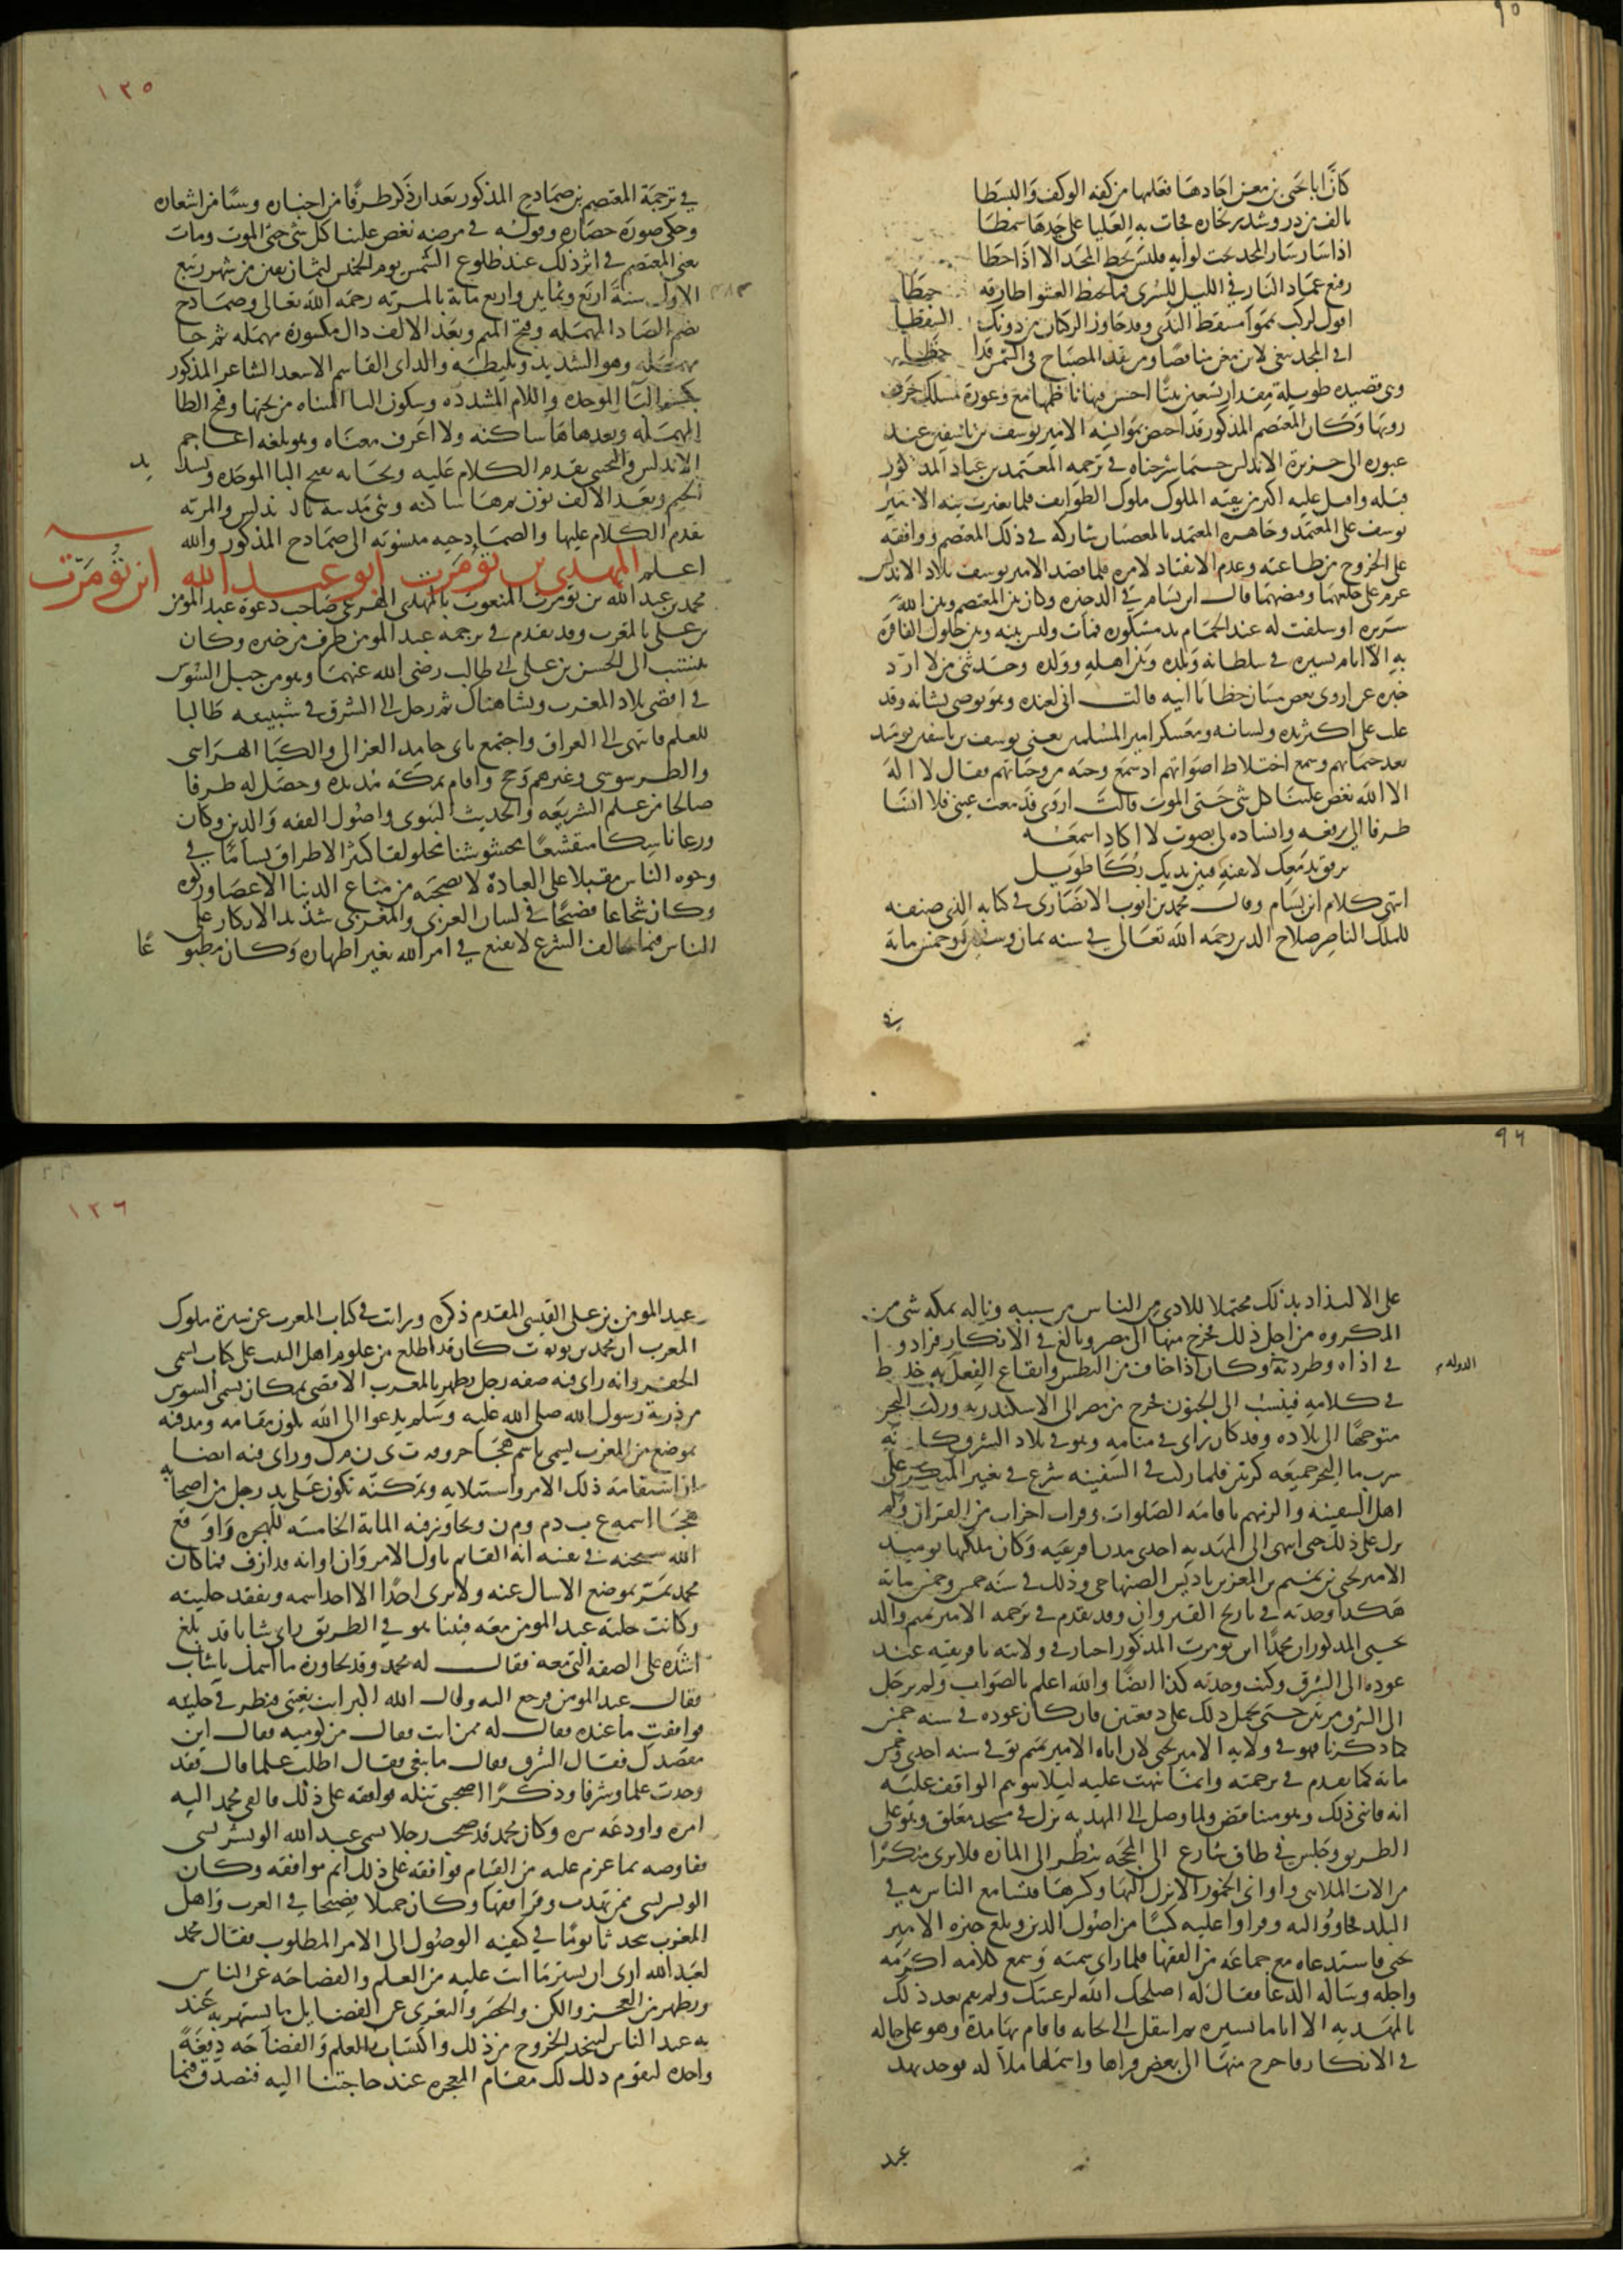 ٩٥
كأن ابا يحيى بن معن اجادها فعلمها من كفه الوكف والبسطا
بالف من در وشذر نجاره فجات به العليا على جيدها سمطا
اذا سار سار المجد تحت لوايه فليس يحط المجد الا اذا حطا
رفيع عماد النار في الليل للسرى فما خبط العشوا طارقه خبطا
اقول لركب يمموا مسقط الندى وقد جاوز الركبان من دونك السقطا
افي المجد تبغي لابن معن مناقضا ومن يقد المصباح في الشمس قد اخطا
وهي قصيده طويلة مقدار تسعين بيتا احسن فيها ناظمها مع وعورة مسلك حرف
رويها وكان المعتصم المذكور قد اختص بموانسه الامير يوسف بن تاشفين عند
عبوره الى جزيرة الاندلس حسبما شرحناه في ترجمه المعتمد بن عباد المذكور
قبله واقبل عليه اكثر من بقيه الملوك ملوك الطوايف فلما تغيرت نيه الامير
يوسف على المعتمد وجاهره المعتمد بالعصيان شاركه في ذلك المعتصم ووافقه
على الخروج من طاعته وعدم الانقياد لامره فلما قصد الامير يوسف بلاد الاندلس
عزم على خلعهما وقبضهما قال ابن بسام في الذخيره وكان بين المعتصم وبين الله
سريره او سلفت له عند الحمام يد مشكوره فمات وليس بينه وبين حلول الفاقره
به الا ايام يسيره في سلطانه وبلده وبين اهله وولده وحدثني من لا ارد
خبره عن اروى بعض مسان حظايا ابيه قالت اني لعنده وهو يوصي بشانه وقد
غلب على اكثر يده ولسانه ومعسكر امير المسلمين يعني يوسف بن تاشفين يومئذ
نعد خيماتهم ونسمع اختلاط اصواتهم اذ سمع وجبه من وجباتهم فقال لا اله
الا الله نغص علينا كل شي حتى الموت قالت اروى فدمعت عيني فلا انسا
طرفا الي يرفعه وانشاده لي بصوت لا اكاد اسمعه
ترفق بدمعك لا تفنه فبين يديك بكا طويل
انتهى كلام ابن بسام وقال محمد بن ايوب الانصارى في كتابه الذي صنفه
للملك الناصر صلاح الدين رحمه الله تعالى في سنه ثمان وستين وخمس مايه
في
١٢٥
في ترجمة المعتصم بن صمادح المذكور بعد ان ذكر طرفا من اخباره وشيا من اشعاره
وحكى صورة حصاره وقوله في مرضه نغص علينا كل شي حتى الموت ومات
يعني المعتصم في اثر ذلك عند طلوع الشمس يوم الخميس لثمان بقين من شهر ربيع
الاول سنة اربع وثمانين واربع ماية بالمريه رحمه الله تعالى وصمادح
بضم الصاد المهمله وفتح الميم وبعد الالف دال مكسوره مهمله ثم حا
مهمله وهو الشديد وبليطه والد ابي القاسم الاسعد الشاعر المذكور
بكسر البا الموحده واللام المشدده وسكون اليا المثناه من تحتها وفتح الطا
المهمله وبعدها ها ساكنه ولا اعرف معناه وهو بلغه اعاجم
الاندلس والتجيبي تقدم الكلام عليه وبجانه بفتح البا الموحده وتشد يد
الجيم وبعد الالف نون ثم ها ساكنه وهي مدينه بالاندلس والمريه
تقدم الكلام عليها والصمادحيه منسوبه الى صمادح المذكور والله
اعلم المهدي بن تومرت ابو عبد الله ابن تومرت
محمد بن عبد الله بن تومرت المنعوت بالمهدى الهرغى صاحب دعوة عبد المومن
بن علي بالمغرب وقد تقدم في ترجمه عبد المومن طرف من خبره وكان
ينتسب الى الحسن بن علي بن ابي طالب رضي الله عنهما وهو من جبل السوس
في اقصى بلاد المغرب ونشا هناك ثم رحل الى الشرق في شبيبته طالبا
للعلم فانتهى الى العراق واجتمع بابي حامد الغزالي والكيا الهراسي
والطرسوسي وغيرهم وحج واقام بمكه مديده وحصل له طرفا
صالحا من علم الشريعه والحديث النبوي واصول الفقه والدين وكان
ورعا ناسكا متقشفا مخشوشنا مخلولقا كثير الاطراق بساما في
وجوه الناس مقبلا على العبادة لا يصحبه من متاع الدنيا الا عصا وركوه
وكان شجاعا فصيحا في لسان العربي والمغربي شديد الانكار على
الناس فيما خالف الشرع لا يقنع في امر الله بغير اظهاره وكان مطبو عا
٩٦
على الالتذاذ بذلك محتملا للاذى من الناس بسببه وناله بمكه شي من
المكروه من اجل ذلك فخرج منها الى مصر وبالغ في الانكار فزادوا
في اذاه وطردته الدوله وكان اذا خاف من البطش وايقاع الفعل به خلط
في كلامه فينسب الى الجنون فخرج من مصر الى الاسكندريه وركب البحر
متوجها الى بلاده وقد كان راى في منامه وهو في بلاد الشرق كانه
شرب ما البحر جميعه كرتين فلما ركب في السفينه شرع في تغيير المنكر على
اهل السفينه والزمهم باقامه الصلوات وقراه احزاب من القران ولم
يزل على ذلك حتى انتهى الى المهديه احدى مدن افريقيه وكان ملكها يوميذ
الامير يحيى بن تميم بن المعز بن باديس الصنهاجي وذلك في سنه خمس وخمس مايه
هكذا وجدته في تاريخ القيروان وقد تقدم في ترجمه الامير تميم والد
يحيى المذكور ان محمدا ابن تومرت المذكور اجتاز في ولايته بافريقيه عند
عوده الى الشرق وكنت وجدته كذا ايضا والله اعلم بالصواب ولم يرحل
الى الشرق مرتين حتى يحمل ذلك على دفعتين فان كان عوده في سنه خمس
كما ذكرنا فهو في ولايه الامير يحيى لان اباه الامير تميم توفي في سنه احدى وخمس
مايه كما تقدم في ترجمته وانما نبهت عليه ليلا يتوهم الواقف عليه
انه فاتني ذلك وهو متناقض ولما وصل الى المهديه نزل في مسجد مغلق وهو على
الطريق وجلس في طاق شارع الى المحجه ينظر الى الماره فلا يرى منكرا
من الات الملاهي واواني الخمور الا نزل اليها وكسرها فتسامع الناس به في
البلد فجاووا اليه وقراوا عليه كتبا من اصول الدين وبلغ خبره الامير
يحيى فاستدعاه مع جماعه من الفقها فلما راى سمته وسمع كلامه اكرمه
واجله وساله الدعا فقال له اصلحك الله لرعيتك ولم يقم بعد ذلك
بالمهديه الا اياما يسيره ثم انتقل الى بجايه فاقام بها مدة وهو على حاله
في الانكار فاخرج منها الى بعض قراها واسمها ملاله فوجد بها
عبد
١٢٦
عبد المومن بن علي القيسي المقدم ذكره ورايت في كتاب المغرب عن سيرة ملوك
المغرب ان محمد بن تومرت كان قد اطلع من علوم اهل البيت على كتاب يسمى
الجفر وانه راى فيه صفه رجل يظهر بالمغرب الاقصى بمكان يسمى السوس
من ذرية رسول الله صلى الله عليه وسلم يدعوا الى الله يكون مقامه ومدفنه
بموضع من المغرب يسمى باسم هجا حروفه ت ى ن م ل وراى فيه ايضا
ان استقامه ذلك الامر واستيلايه وتمكنه تكون على يد رجل من اصحابه
هجا اسمه ع ب د م و م ن ويجاوز وقته الماية الخامسه للهجره واوقع
الله سبحنه في نفسه انه القايم باول الامر وان اوانه قد ازف فما كان
محمد يمر بموضع الا سال عنه ولا يرى احدا الا اخذ اسمه وتفقد حليته
وكانت حليه عبد المومن معه فبينا هو في الطريق راى شابا قد بلغ
اشده على الصفه التي معه فقال له محمد وقد تجاوزه ما اسمك يا شاب
فقال عبد المومن فرجع اليه وقال الله اكبر انت بغيتي فنظر في حليته
فوافقت ما عنده فقال له ممن انت فقال من كوميه فقال اين
مقصدك فقال الشرق فقال ما تبغي فقال اطلب علما قال فقد
وجدت علما وشرفا وذكرا اصحبني تنله فوافقه على ذلك فالقى محمد اليه
امره واودعه سره وكان محمد قد صحب رجلا يسمى عبد الله الونشريسي
ففاوضه بما عزم عليه من القيام فوافقه على ذلك اتم موافقه وكان
الونشريسي ممن تهذب وقرا فقها وكان جميلا فصيحا في العرب واهل
المغرب يتحدثا يوما في كيفيه الوصول الى الامر المطلوب فقال محمد
لعبد الله ارى ان تستر ما انت عليه من العلم والفصاحه عن الناس
وتظهر من العجز واللكن والحصر والتعري عن الفضايل ما تشتهر به عند
به عند الناس لنتخذ الخروج من ذلك واكتساب العلم والفصاحه دفعة
واحده ليقوم ذلك لك مقام المعجزه عند حاجتنا اليه فتصدق فيما